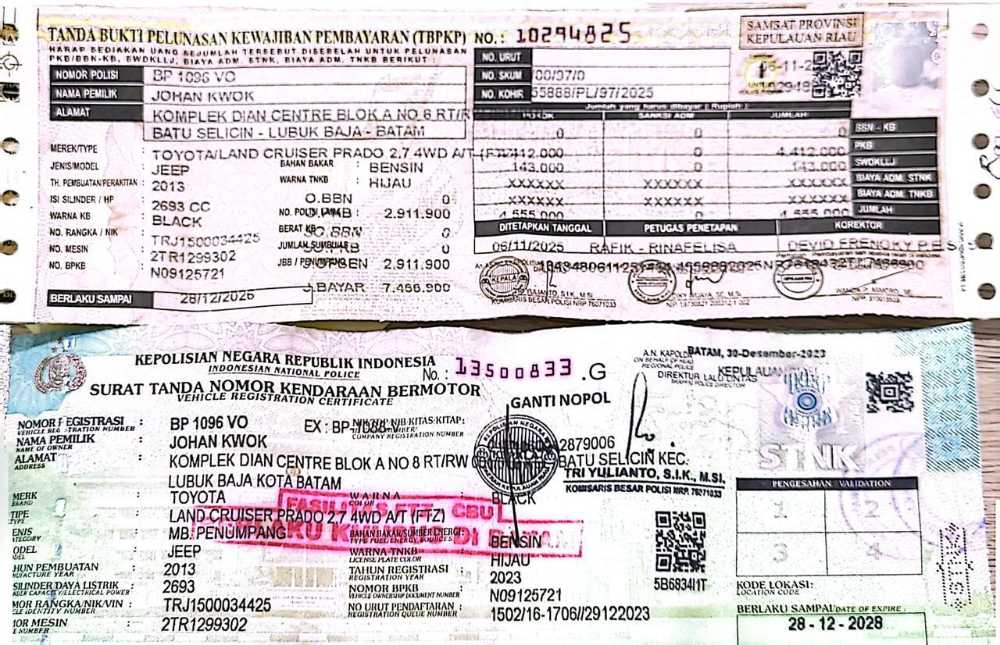 TANDA BUKTI PELUNASAN KEWAJIBAN PEMBAYARAN (TBPKP) NO.: 10294825
HARAP SEDIAKAN UANG SEJUMLAH TERSEBUT DISEBELAH UNTUK PELUNASAN
PKB/BBN-KB, SWDKLLJ, BIAYA ADM. STNK, BIAYA ADM. TNKB BERIKUT :
SAMSAT PROVINSI
KEPULAUAN RIAU
NOMOR POLISI BP 1096 VO
NAMA PEMILIK JOHAN KWOK
ALAMAT KOMPLEK DIAN CENTRE BLOK A NO 8 RT/R
BATU SELICIN - LUBUK BAJA - BATAM
MEREK/TYPE TOYOTA/LAND CRUISER PRADO 2,7 4WD A/T (FTZ)
JENIS/MODEL JEEP BAHAN BAKAR : BENSIN
TH. PEMBUATAN/PERAKITAN : 2013 WARNA TNKB : HIJAU
ISI SILINDER / HP : 2693 CC O.BBN 0
WARNA KB : BLACK 2.911.900
NO. RANGKA / NIK : TRJ1500034425 BERAT KB 0
NO. MESIN : 2TR1299302 0
NO. BPKB : N09125721 2.911.900
J.BAYAR 7.466.900
BERLAKU SAMPAI 28/12/2026
NO. URUT
NO. SKUM /00/97/0
NO. KOHIR 55888/PL/97/2025
Jumlah yang harus dibayar ( Rupiah )
POKOK SANKSI ADM JUMLAH
0 0 0 BBN - KB
4.412.000 0 4.412.000 PKB
143.000 0 143.000 SWDKLLJ
XXXXXX XXXXXX XXXXXX BIAYA ADM. STNK
XXXXXX XXXXXX XXXXXX BIAYA ADM. TNKB
4.555.000 0 4.555.000 JUMLAH
DITETAPKAN TANGGAL PETUGAS PENETAPAN KOREKTOR
06/11/2025 RAFIK - RINAFELISA
KOMISARIS BESAR POLISI NRP 76071033
KEPOLISIAN NEGARA REPUBLIK INDONESIA
INDONESIAN NATIONAL POLICE
No. : 13500833 .G
SURAT TANDA NOMOR KENDARAAN BERMOTOR
VEHICLE REGISTRATION CERTIFICATE
A.N. KAPOLDA
ON BEHALF OF HEAD
REGIONAL POLICE
DIREKTUR LALU LINTAS
BATAM, 30-Desember-2023
KEPULAUAN
GANTI NOPOL
NOMOR REGISTRASI : BP 1096 VO EX : BP
NAMA PEMILIK : JOHAN KWOK
NAME OF OWNER
COMPANY REGISTRATION NUMBER
2879006
ALAMAT : KOMPLEK DIAN CENTRE BLOK A NO 8 RT/RW BATU SELICIN KEC.
ADDRESS
LUBUK BAJA KOTA BATAM
TRI YULIANTO, S.I.K., M.SI.
KOMISARIS BESAR POLISI NRP 76071033
MERK : TOYOTA WARNA : BLACK
TYPE : LAND CRUISER PRADO 2,7 4WD A/T (FTZ)
FASILITAS FTZ CBU
DI
JENIS : MB. PENUMPANG BAHAN BAKAR/SUMBER ENERGI : BENSIN
MODEL : JEEP WARNA TNKB : HIJAU
LICENSE PLATE COLOR
TAHUN PEMBUATAN : 2013 TAHUN REGISTRASI : 2023
MANUFACTURE YEAR REGISTRATION YEAR
SILINDER/DAYA LISTRIK : 2693 NOMOR BPKB : N09125721
VEHICLE OWNERSHIP DOCUMENT NUMBER
NOMOR RANGKA/NIK/VIN : TRJ1500034425 NO URUT PENDAFTARAN : 1502/16-1706//29122023
REGISTRATION QUEUE NUMBER
NOMOR MESIN : 2TR1299302
E NUMBER
5B6834I1T
STNK
PENGESAHAN VALIDATION
1 2
3 4
KODE LOKASI:
LOCATION CODE
BERLAKU SAMPAI/DATE OF EXPIRE :
28 - 12 - 2028